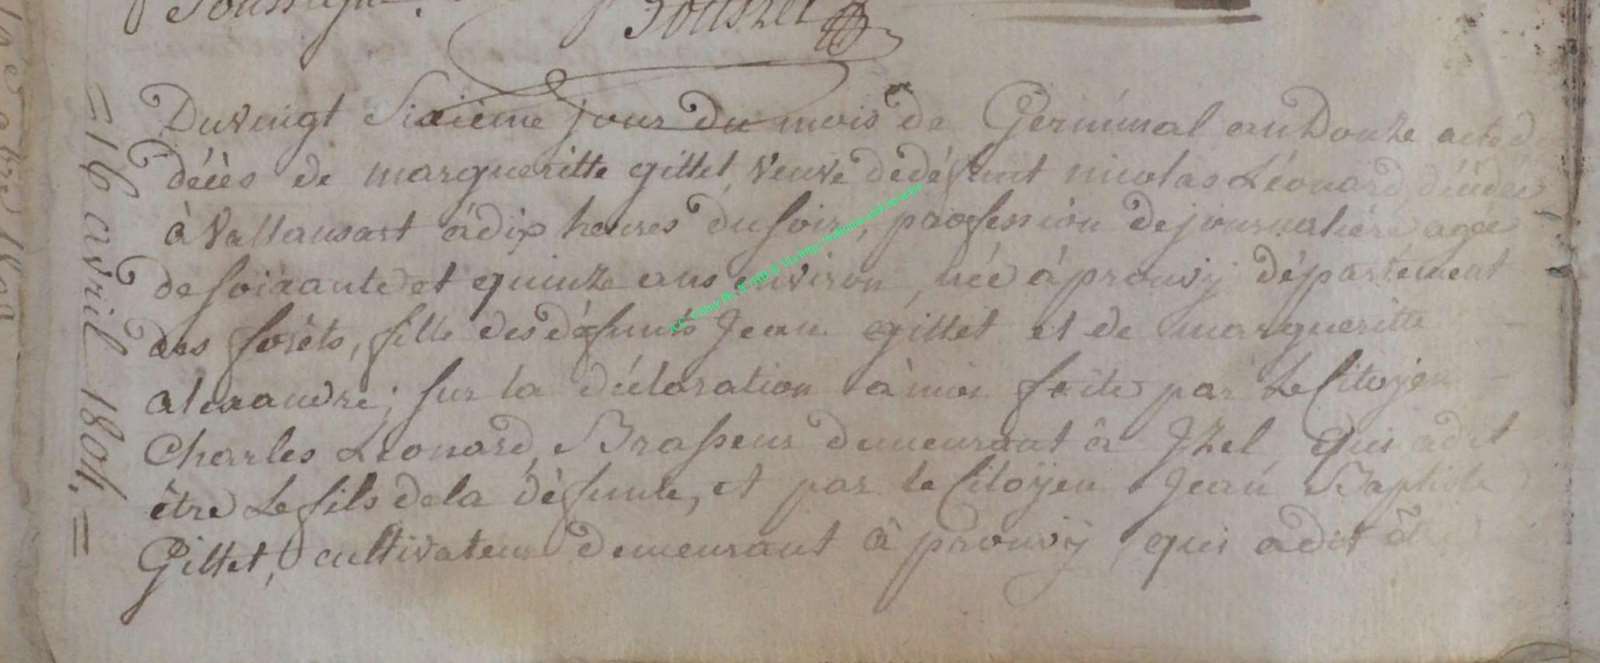 = 16 avril 1804. =
Du vingt Sixiéme jour du mois de Germinal an Douze acte d
décès de margueritte gillet, veuve de défunt nicolas Léonard, décédée
à Vallansart à dix heures du soir, profession de journaliére agée
de soixante et quinze ans environ, née à prouvÿ département
des forêts, fille des défunts Jean gillet et de margueritte
alexandre; sur la déclaration à moi faite par Le Citoyen
Charles Léonard, Brasseur demeurant à Izel qui a dit
être Le fils de la défunte, et par le Citoyen Jean Baptiste
Gillet, cultivateur demeurant à prouvÿ, qui a dit